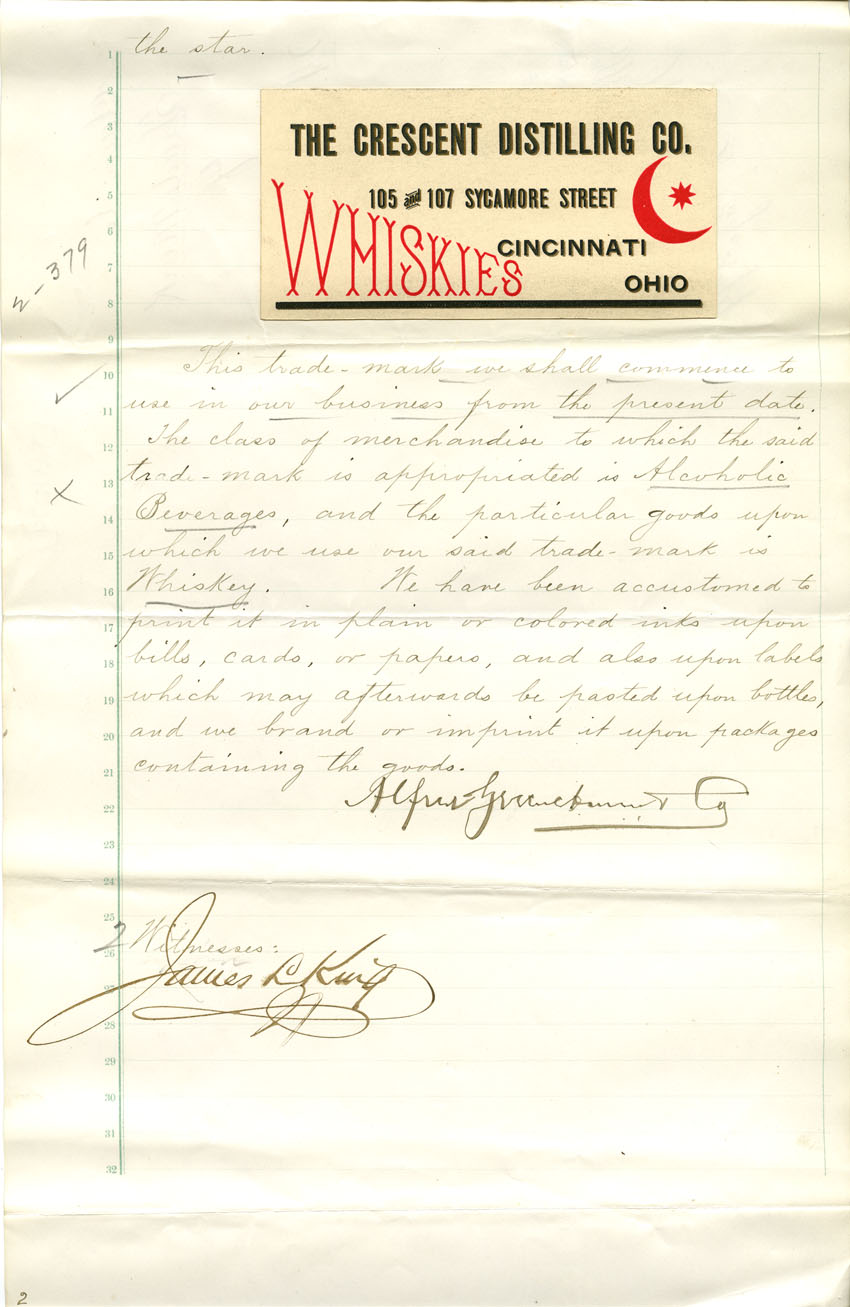 the star.
THE CRESCENT DISTILLING CO.
105 and 107 SYCAMORE STREET
WHISKIES
CINCINNATI
OHIO
2-379
This trade-mark we shall commence to
use in our business from the present date.
The class of merchandise to which the said
trade-mark is appropriated is Alcoholic
Beverages, and the particular goods upon
which we use our said trade-mark is
Whiskey. We have been accustomed to
print it in plain or colored inks upon
bills, cards, or papers, and also upon labels
which may afterwards be pasted upon bottles,
and we brand or imprint it upon packages
containing the goods.
Alfred Greenebaum & Co
2 Witnesses:
James L King
1
2
3
4
5
6
7
8
9
10
11
12
13
14
15
16
17
18
19
20
21
22
23
24
25
26
27
28
29
30
31
32
2